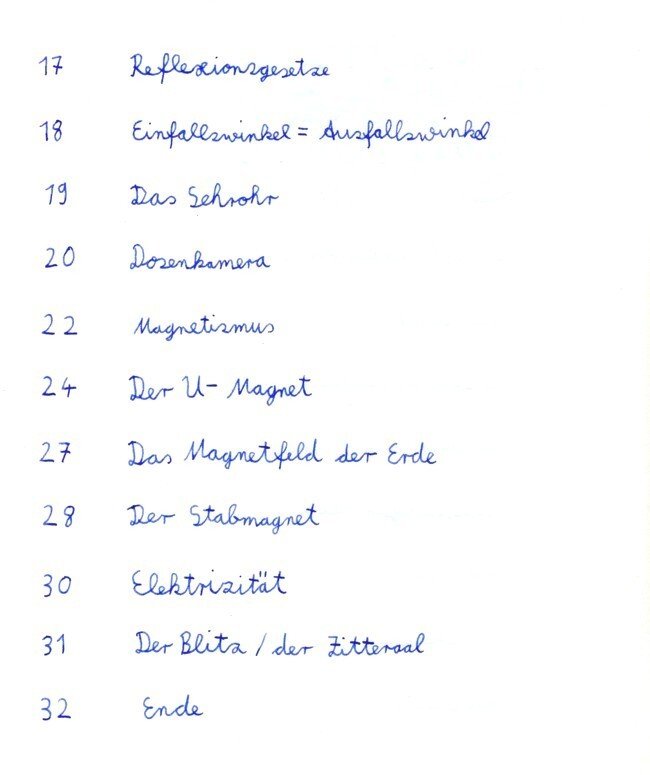 17 Reflexionsgesetze
18 Einfallswinkel = Ausfallswinkel
19 Das Sehrohr
20 Dosenkamera
22 Magnetismus
24 Der U-Magnet
27 Das Magnetfeld der Erde
28 Der Stabmagnet
30 Elektrizität
31 Der Blitz / der Zitteraal
32 Ende